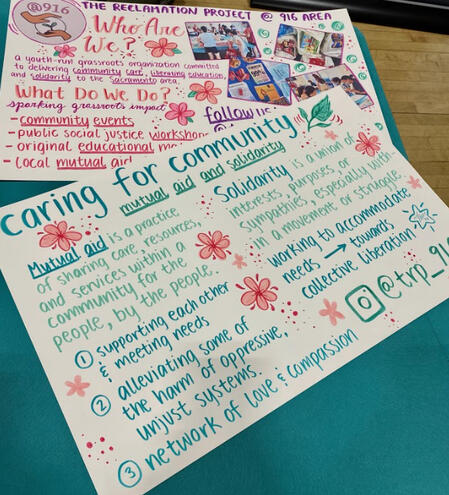 @916
THE RECLAMATION PROJECT @ 916 AREA
Who Are
We?
a youth-run grassroots organization committed
to delivering community care, liberating education,
and solidarity to the Sacramento area.
What Do We Do?
sparking grassroots impact
- community events
- public social justice workshops
- original educational
- local mutual aid
follow us
caring for community
mutual aid and solidarity
Mutual aid is a practice
of sharing care, resources,
and services within the
community for the
people, by the people.
① supporting each other
& meeting needs
② alleviating some of
the harm of oppressive,
unjust systems.
③ network of love & compassion
Solidarity is a union of
interests, purposes or
sympathies, especially with
in a movement or struggle.
working to accommodate
needs → towards
collective liberation
@trp_916